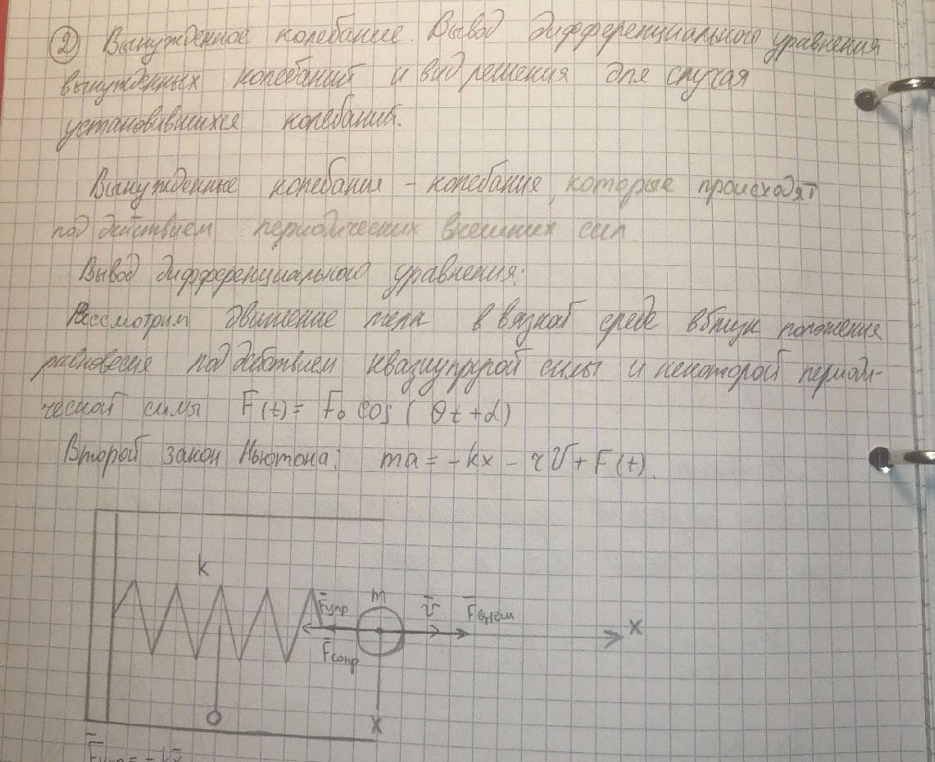 ② Вынужденное колебание. Вывод дифференциального уравнения
вынужденных колебаний и вид решения для случая
установившихся колебаний.
Вынужденные колебания – колебание, которые происходят
под действием периодических внешних сил.
Вывод дифференциального уравнения:
Рассмотрим движение тела в вязкой среде вблизи положения
равновесия под действием квазиупругой силы и некоторой периоди-
ческой силы F(t) = F₀ cos(θt+α)
Второй закон Ньютона: ma = -kx - rV + F(t).
k
F̄упр m v̄ F̄внеш
x
F̄сопр
0 x
F̄упр = -kx̄